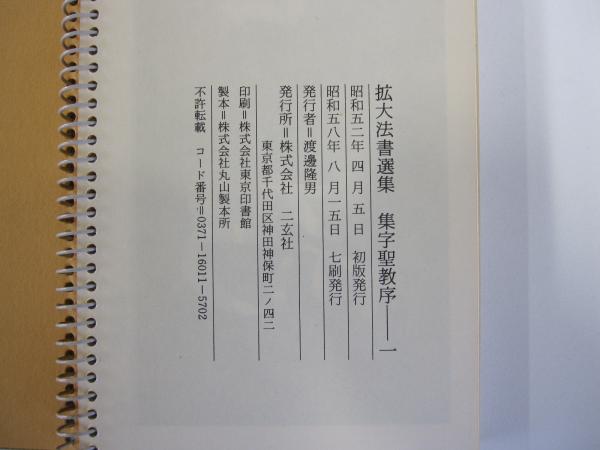 拡大法書選集　集字聖教序――一
昭和五二年　四　月　五　日　初版発行
昭和五八年　八　月一五日　七刷発行
発行者＝渡邊隆男
発行所＝株式会社　二玄社
東京都千代田区神田神保町二ノ四二
印刷＝株式会社東京印書館
製本＝株式会社丸山製本所
不許転載　コード番号＝0371―16011―5702